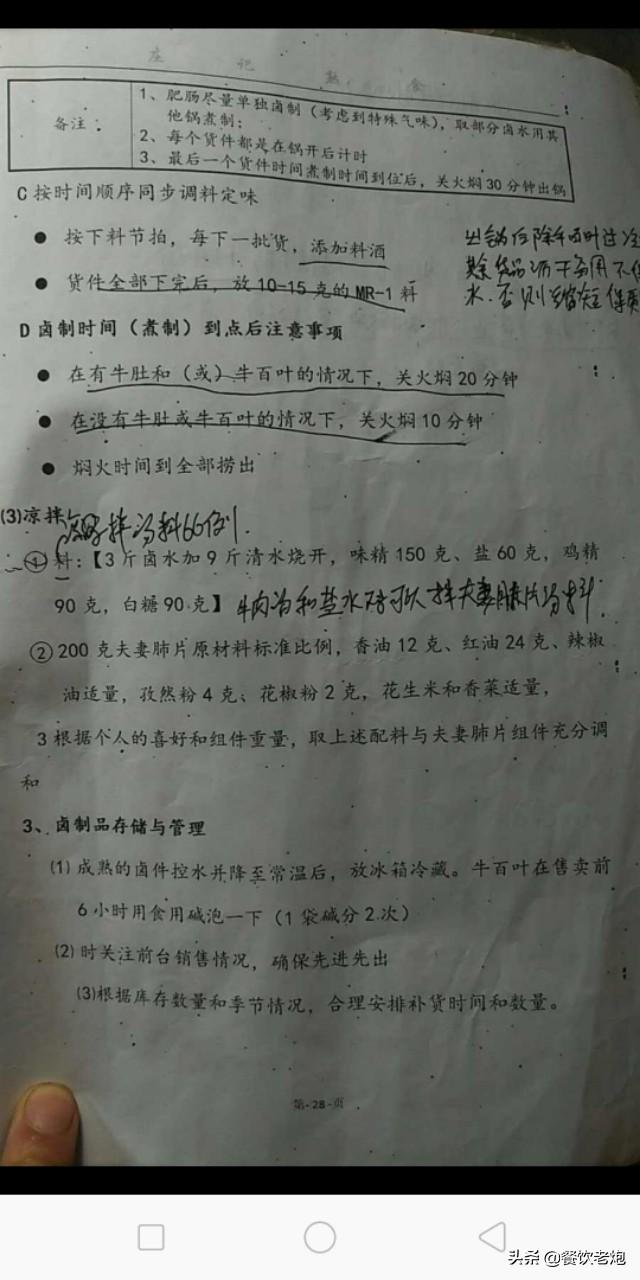 庄记熟食
备注:
1、肥肠尽量单独卤制(考虑到特殊气味),取部分卤水用其
他锅煮制;
2、每个货件都是在锅开后计时
3、最后一个货件时间煮制时间到位后,关火焖30分钟出锅
C 按时间顺序同步调料定味
● 按下料节拍,每下一批货,添加料酒
● 货件全部下完后,放10-15克的MR-1料
出锅后除牛百叶过冷
其余货品沥干备用不
水.否则缩短保
D 卤制时间(煮制)到点后注意事项
● 在有牛肚和(或)牛百叶的情况下,关火焖20分钟
● 在没有牛肚或牛百叶的情况下,关火焖10分钟
● 焖火时间到全部捞出
(3)凉拌
拌汤料的比例.
① 料:【3斤卤水加9斤清水烧开,味精150克、盐60克,鸡精
90克,白糖90克】
牛肉汤和盐水 可以拌夫妻肺片汤料
② 200克夫妻肺片原材料标准比例,香油12克、红油24克、辣椒
油适量,孜然粉4克、花椒粉2克,花生米和香菜适量,
3根据个人的喜好和组件重量,取上述配料与夫妻肺片组件充分调
和
3、卤制品存储与管理
(1)成熟的卤件控水并降至常温后,放冰箱冷藏。牛百叶在售卖前
6小时用食用碱泡一下(1袋碱分2次)
(2)时关注前台销售情况,确保先进先出
(3)根据库存数量和季节情况,合理安排补货时间和数量。
第-28-页
头条@餐饮老炮